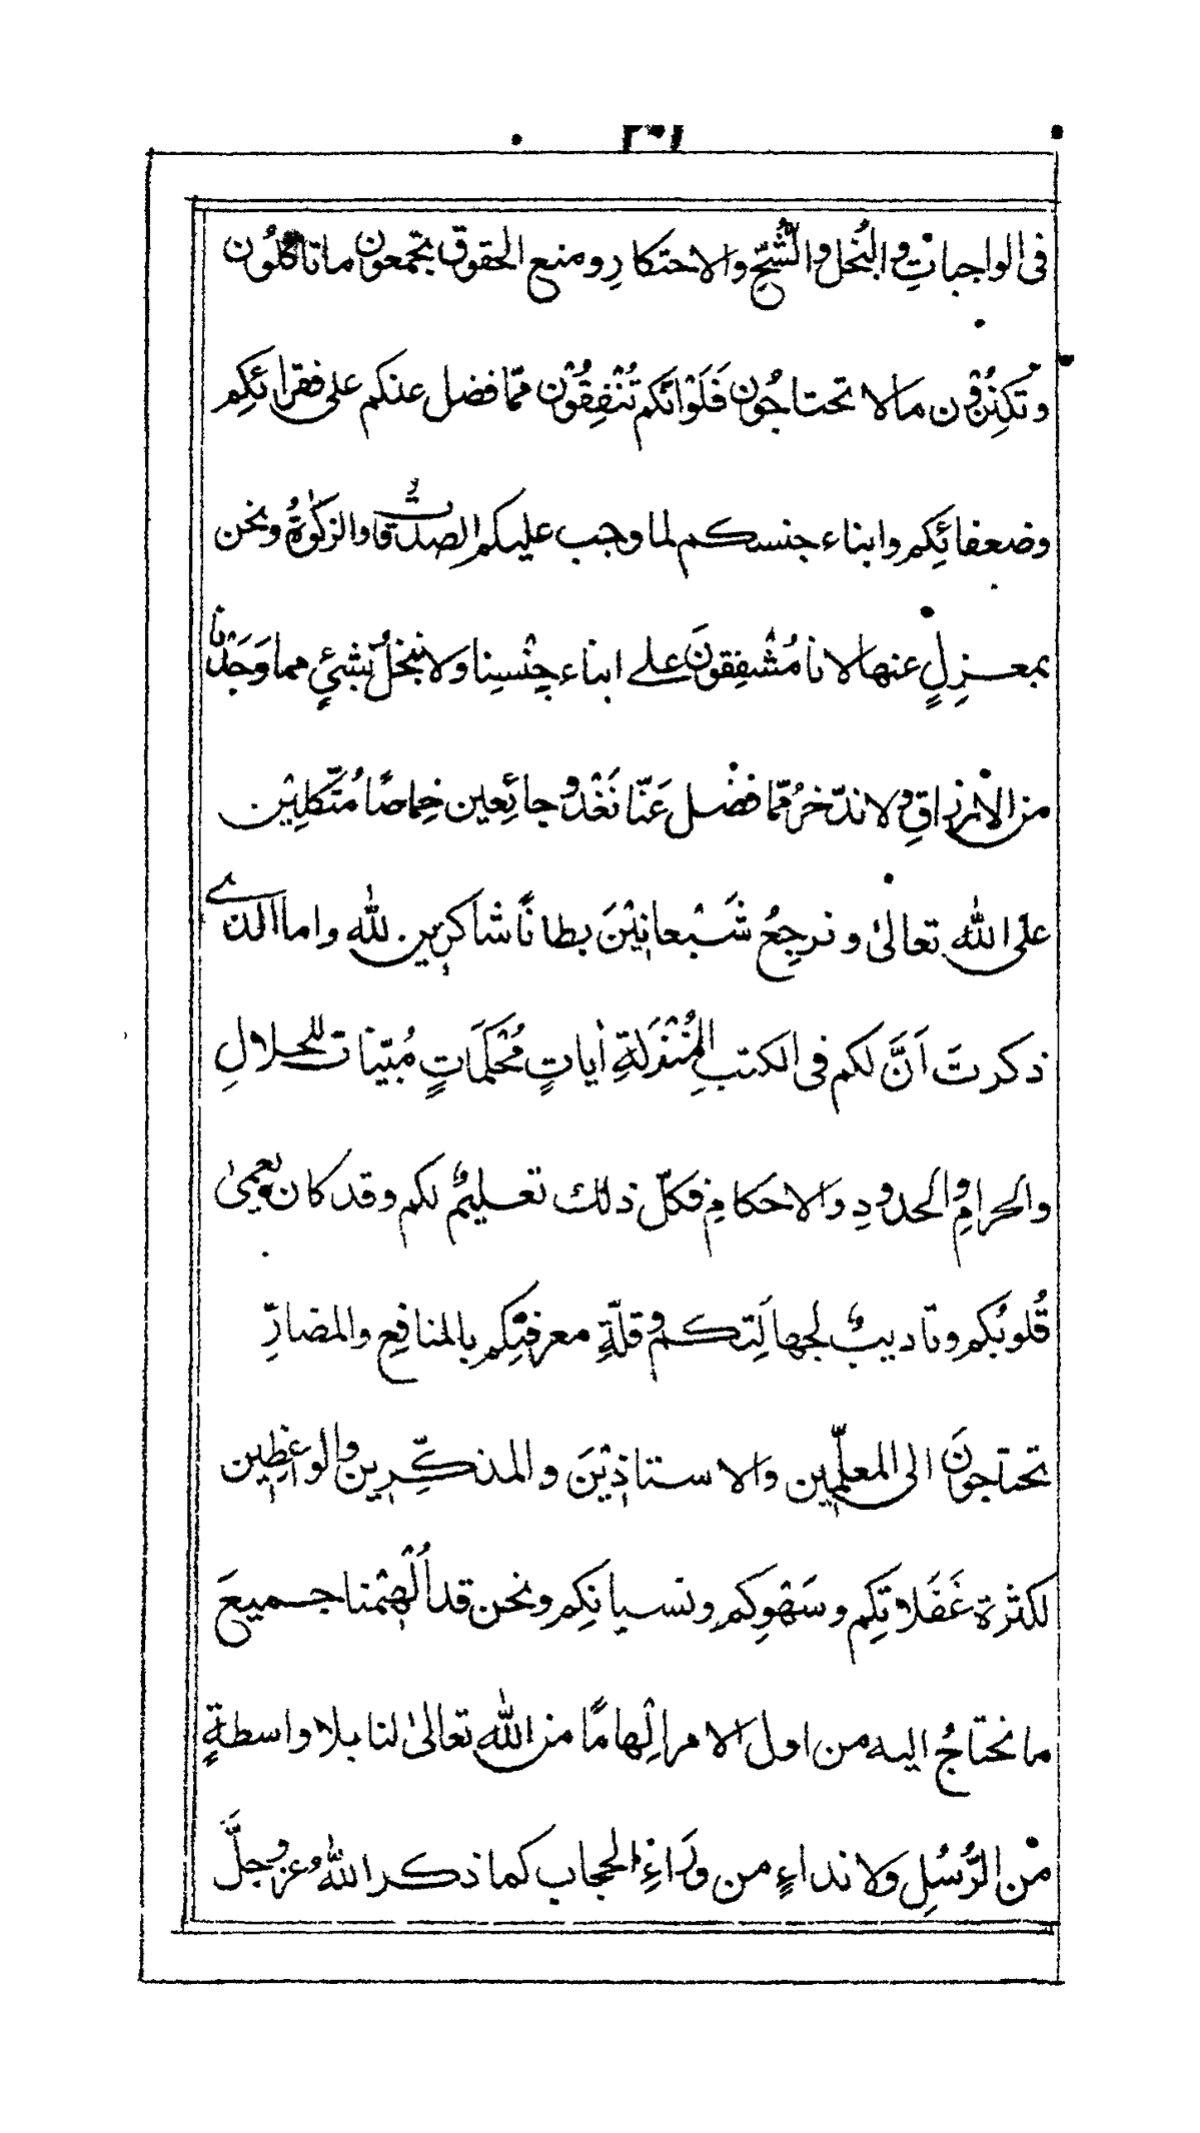 فى الواجباتِ والبُخل والشُّحِّ والاحتكارِ ومنع الحقوق بتجمعون ما تاكلُون
وتُكنِزُوْن مالا تحتاجُون فَلَوْاَنَّكم تُنْفِقُوْن ممّا فضل عنكم على فقرائكِم
وضعفائكِم وابناء جنسكم لما وجب عليكم الصدقات والزكٰوةُ ونحن
بمعزلٍ عنها لانا مُشْفِقونَ على ابناء جِنْسِنا ولا نبخلُ بشئٍ مما وَجَدْنا
من الارزاقِ ولا ندّخرُ ممّا فضْل عَنّا نَغْدُو جائِعين خِماصًا مُتَّكلِيْن
على اللّٰه تعالىٰ ونرجِعُ شَبْعانِيْنَ بطانًا شاكرين للّٰه واما الذے
ذكرتَ اَنَّ لكم فى الكتب المُنْزَلَةِ اٰياتٍ مُحْكَمَاتٍ مُبيّنات للحلالِ
والحرامِ والحدودِ والاحكامِ فكلّ ذلك تعليمٌ لكم وقد كان يعمىٰ
قُلوبُكم وتاديبٌ لجهالَتِكم وقلّةِ معرفتِكم بالمنافِعِ والمضارِّ
تحتاجونَ الى المعلّمين والاستاذِيْنَ والمذكِّرين والواعظِين
لكثرة غَفَلاتِكم وسَهْوِكم ونسيانِكم ونحن قد اُلْهِمْنا جميعَ
ما نحتاجُ اليه من اول الامر اِلْهامًا من اللّٰه تعالىٰ لنا بلا واسطةٍ
مّن الرُّسُلِ ولا نداءٍ من وَراءِ الحجاب كما ذكر اللّٰهُ عز وجلَّ